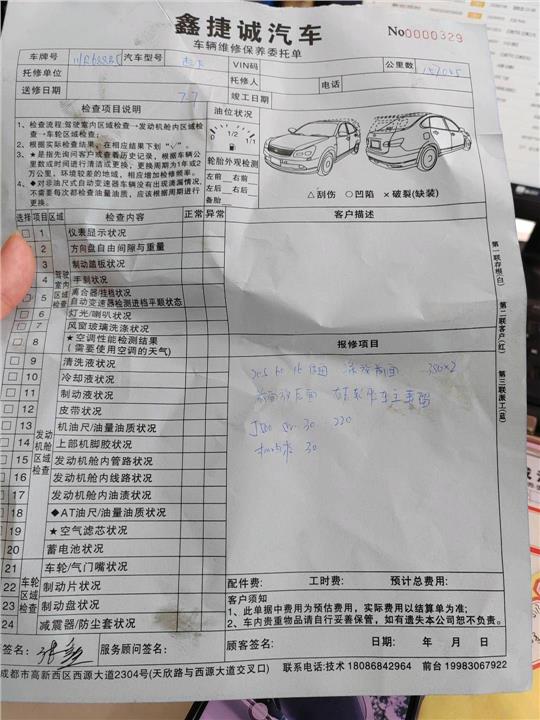 鑫捷诚汽车
车辆维修保养委托单
No0000329
车牌号 汽车型号 VIN码 公里数
托修单位 托修人 电话
送修日期 7.7 竣工日期
检查项目说明
1、检查流程:驾驶室内区域检查→发动机舱内区域检查→车轮区域检查;
2、根据实际检查结果,在相应结果下划"√"
3、★是指先询问客户或查看历史记录,根据车辆公里数或时间进行清洁或更换,更换周期为1年或2万公里,环境较差的地域,相应增加检修频率。
4、◆对非油尺式自动变速器车辆没有出现渗漏情况,不需要每次都检查油量油质,应该根据周期进行更换。
油位状况
0 1/2 1/1
轮胎外观检测
左前 右前
左后 右后
备胎
△刮伤 ○凹陷 ×破裂(缺装)
选择 项目 区域 检查内容 正常 异常
客户描述
驾驶室内区域检查
1 仪表显示状况
2 方向盘自由间隙与重量
3 制动踏板状况
4 手刹状况
5 离合器/挂档状况
自动变速器检测进档平顺状态
6 灯光/喇叭状况
7 风窗玻璃洗涤状况
8 ★空调性能检测结果
(需要使用空调的天气)
发动机舱区域检查
9 清洗液状况
10 冷却液状况
11 制动液状况
12 皮带状况
13 机油尺/油量油质状况
14 上部机脚胶状况
15 发动机舱内管路状况
16 发动机舱内线路状况
17 发动机舱内油渍状况
18 ◆AT油尺/油量油质状况
19 ★空气滤芯状况
20 蓄电池状况
车轮区域检查
21 车轮/气门嘴状况
22 制动片状况
23 制动盘状况
24 减震器/防尘套状况
报修项目
350×2
30 220
30
第一联存根(白)
第二联客户(红)
第三联派工(蓝)
配件费: 工时费: 预计总费用:
客户须知
1、此单据中费用为预估费用,实际费用以结算单为准;
2、车内贵重物品请自行妥善保管,如有遗失本公司恕不负责。
签名: 服务顾问签名: 顾客签名: 日期: 年 月 日
成都市高新西区西源大道2304号(天欣路与西源大道交叉口) 联系电话:技术 18086842964 前台 19983067922